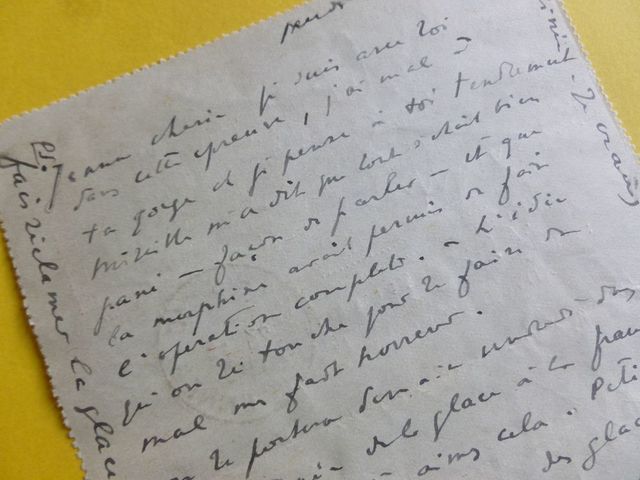 Jeanne cherie je suis avec toi
dans cette epreuve, j'ai mal à
ta gorge et je pense à toi tendrement
Mireille m'a dit que tout s'était bien
passé — façon de parler — et que
la morphine avait permis de faire
l'operation complete. — L'idée
qu'on te touche pour te faire du
mal me fait horreur.
te portera demain
de la glace à la
aimes cela. Peti
des glac
PS.
fais réclamer la glace